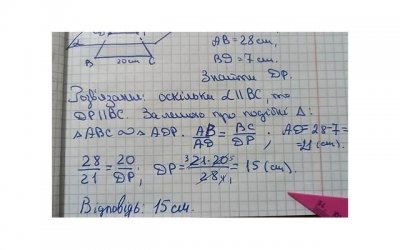 α
B 20 см C
AB = 28 см,
BD = 7 см.
Знайти DP.
Розв'язання: оскільки α || BC, то
DP || BC. За лемою про подібні Δ:
△ABC ∾ △ADP. AB/AD = BC/DP. AD = 28-7 =
= 21 (см).
28/21 = 20/DP; DP = 21·20/28 = 15 (см).
Відповідь: 15 см.